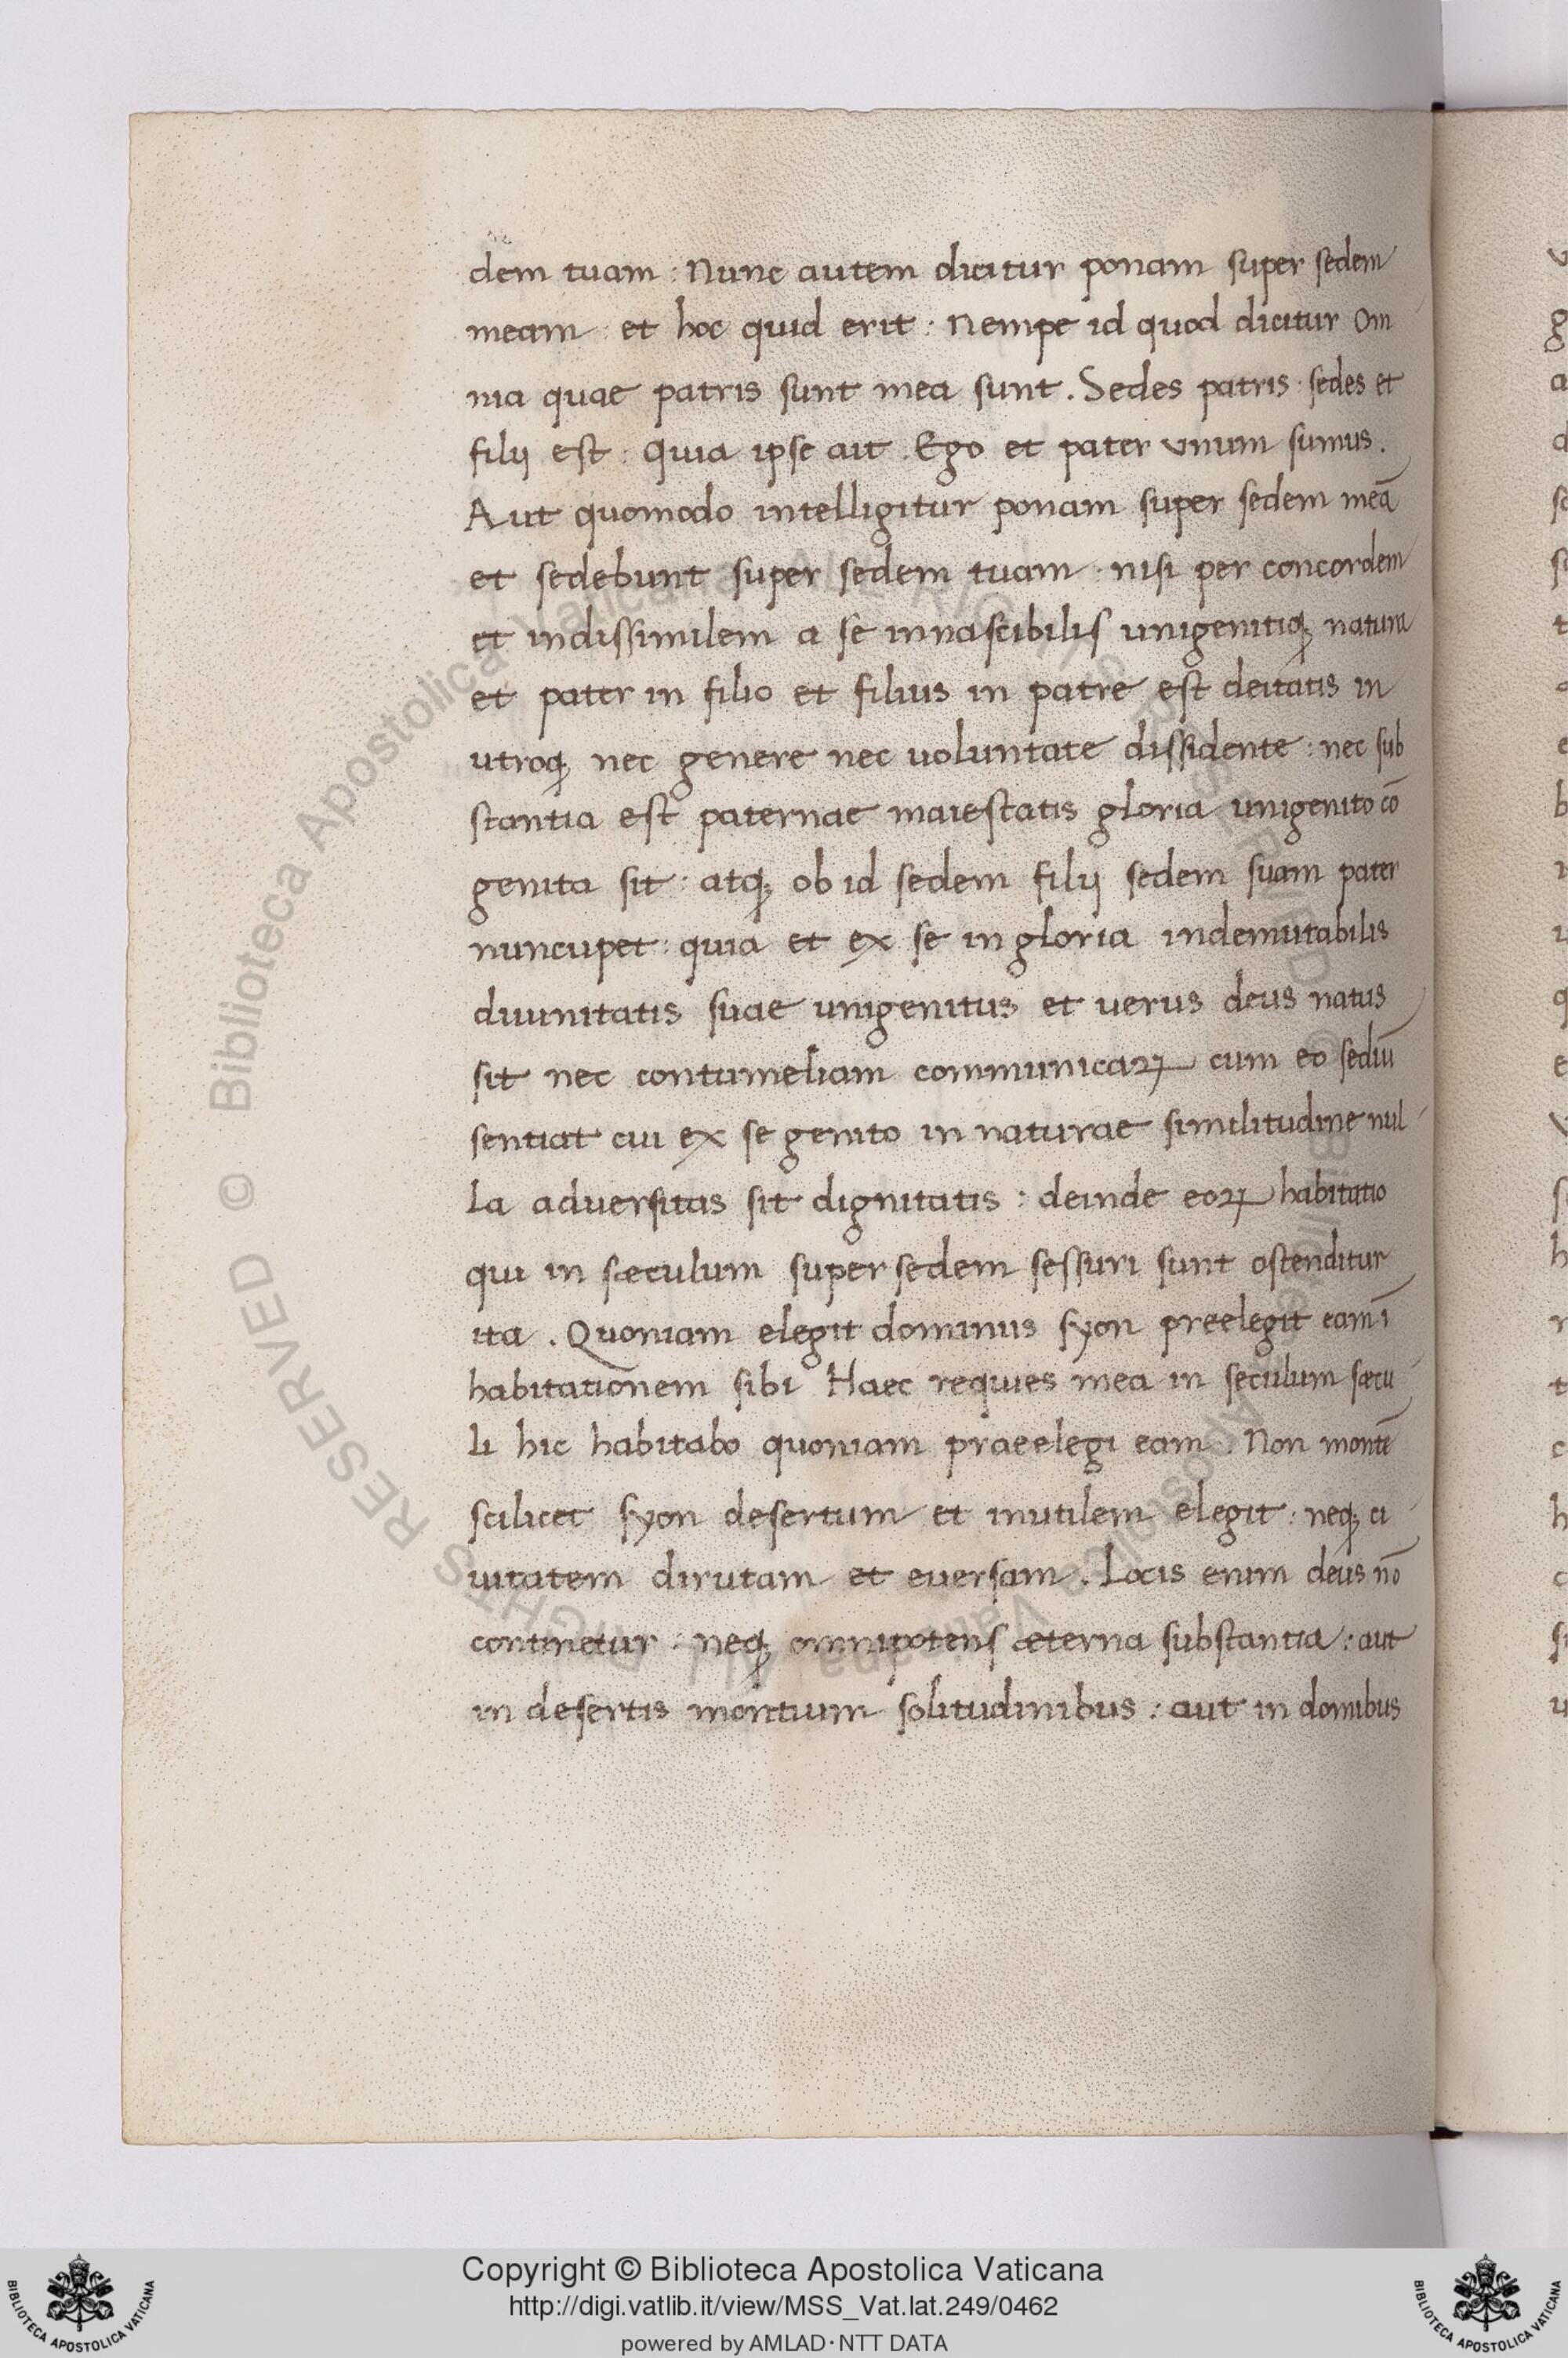 dem tuam : Nunc autem dicitur ponam super sedem
meam : et hoc quid erit : Nempe id quod dicitur Om
nia quae patris sunt mea sunt . Sedes patris · sedes et
filij est : quia ipse ait . Ego et pater vnum sumus .
Aut quomodo intelligitur ponam super sedem meā
et sedebunt super sedem tuam · nisi per concordem
et indissimilem a se innascibilis unigenitiqꝫ natura
et pater in filio et filius in patre est deitatis in
utroqꝫ nec genere nec uoluntate dissidente : nec sub
stantia est paternae maiestatis gloria unigenito cō
genita sit : atqꝫ ob id sedem filij sedem suam pater
nuncupet : quia et ex se in gloria indemutabilis
diuinitatis suae unigenitus et uerus deus natus
sit nec contumeliam communicaꝝ cum eo sediū
sentiat cui ex se genito in naturae similitudine nul
la aduersitas sit dignitatis : deinde eoꝝ habitatio
qui in sæculum super sedem sessuri sunt ostenditur
ita . Quoniam elegit dominus syon preelegit eam ī
habitationem sibi Haec requies mea in seculum sæcu
li hic habitabo quoniam praeelegi eam . Non montē
scilicet syon desertum et inutilem elegit : neqꝫ ci
uitatem dirutam et euersam . Locis enim deus nō
continetur : neqꝫ omnipotens æterna substantia : aut
in desertis montium solitudinibus : aut in domibus
© Biblioteca Apostolica Vaticana ALL RIGHTS RESERVED © Biblioteca Apostolica Vaticana ALL RIGHTS RESERVED
Copyright © Biblioteca Apostolica Vaticana
http://digi.vatlib.it/view/MSS_Vat.lat.249/0462
powered by AMLAD·NTT DATA
BIBLIOTECA APOSTOLICA VATICANA
BIBLIOTECA APOSTOLICA VATICANA